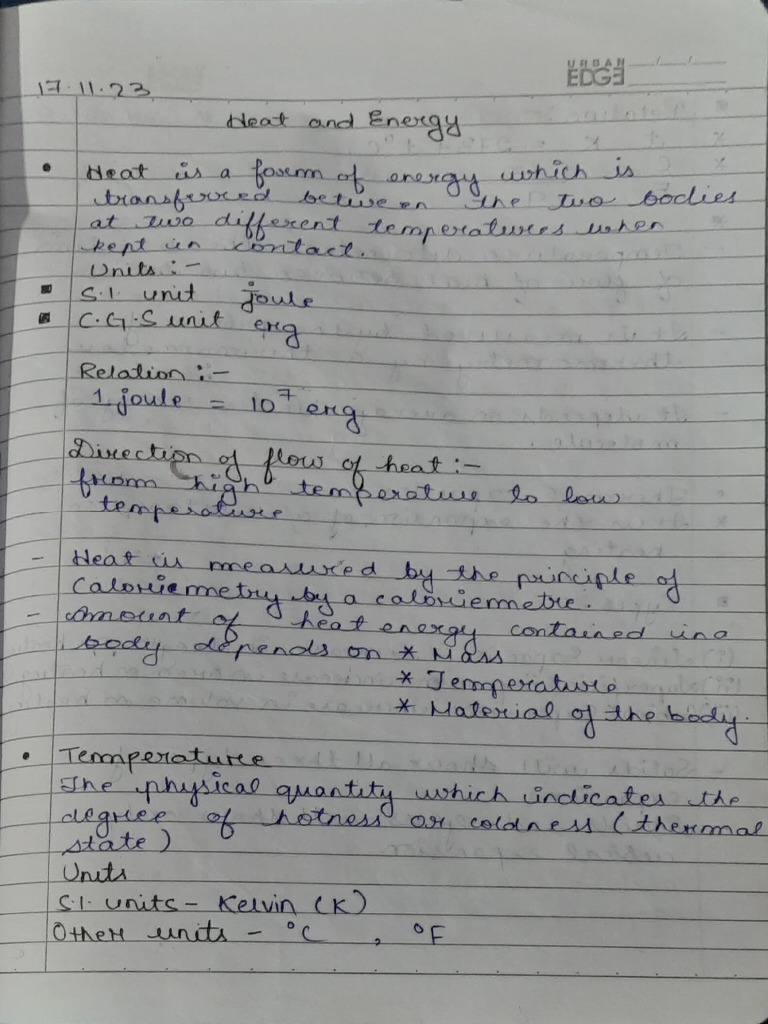 URBAN
EDGE
17.11.23
Heat and Energy
• Heat is a form of energy which is
transferred between the two bodies
at two different temperatures when
kept in contact.
Units :-
▪ S.I. unit joule
▪ C.G.S unit erg
Relation :-
1 joule = 10⁷ erg
Direction of flow of heat :-
from high temperature to low
temperature
- Heat is measured by the principle of
Caloriemmetry by a caloriemetre.
- Amount of heat energy contained in a
body depends on * Mass
* Temperature
* Material of the body.
• Temperature
The physical quantity which indicates the
degree of hotness or coldness (thermal
state)
Units
S.I. units - Kelvin (K)
Other units - °C , °F